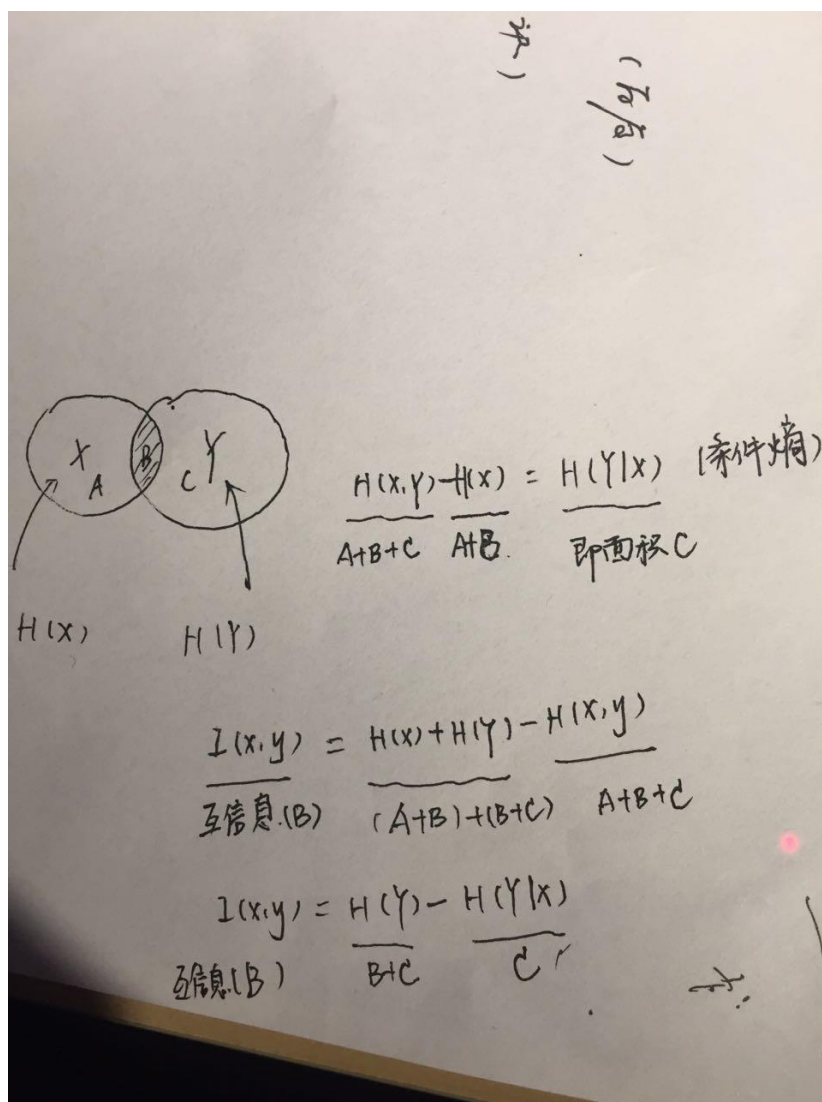 X
A
B
C
Y
H(X,Y)-H(X) = H(Y|X) (条件熵)
A+B+C A+B. 即面积C
H(X) H(Y)
I(x,y) = H(X)+H(Y)-H(X,y)
互信息.(B) (A+B)+(B+C) A+B+C
I(x,y) = H(Y)- H(Y|X)
互信息(B) B+C C